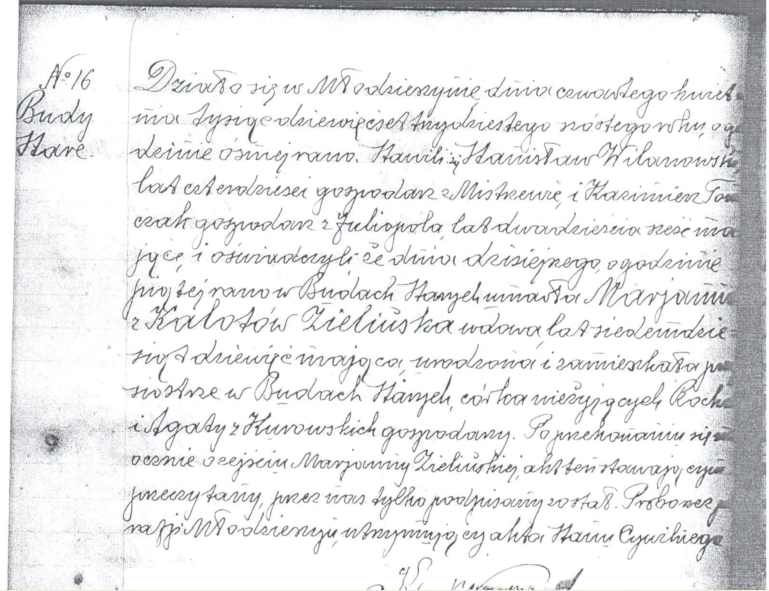 № 16
Budy
Stare.
Działo się w Młodzieszynie dnia czwartego kwiet-
nia tysiąc dziewięćset trzydziestego szóstego roku, o go
dzinie ósmej rano. Stawili się Stanisław Wilanowski,
lat czterdzieści gospodarz z Mistrzewic, i Kazimierz Tom
czak gospodarz z Juliopola, lat dwadzieścia sześć ma
jący, i oświadczyli, że dnia dzisiejszego, o godzinie
piątej rano w Budach Starych umarła Marjanna
z Kalotów Zielińska wdowa, lat siedemdzie-
siąt dziewięć mająca, urodzona i zamieszkała przy
siostrze w Budach Starych, córka nieżyjących Rocha
i Agaty z Kurowskich gospodarzy. Po przekonaniu się na
ocznie o zejściu Marjanny Zielińskiej, akt ten stawającym
przeczytany, przez nas tylko podpisany został. Proboszcz p
rafji Młodzieszyn, utrzymujący akta Stanu Cywilnego